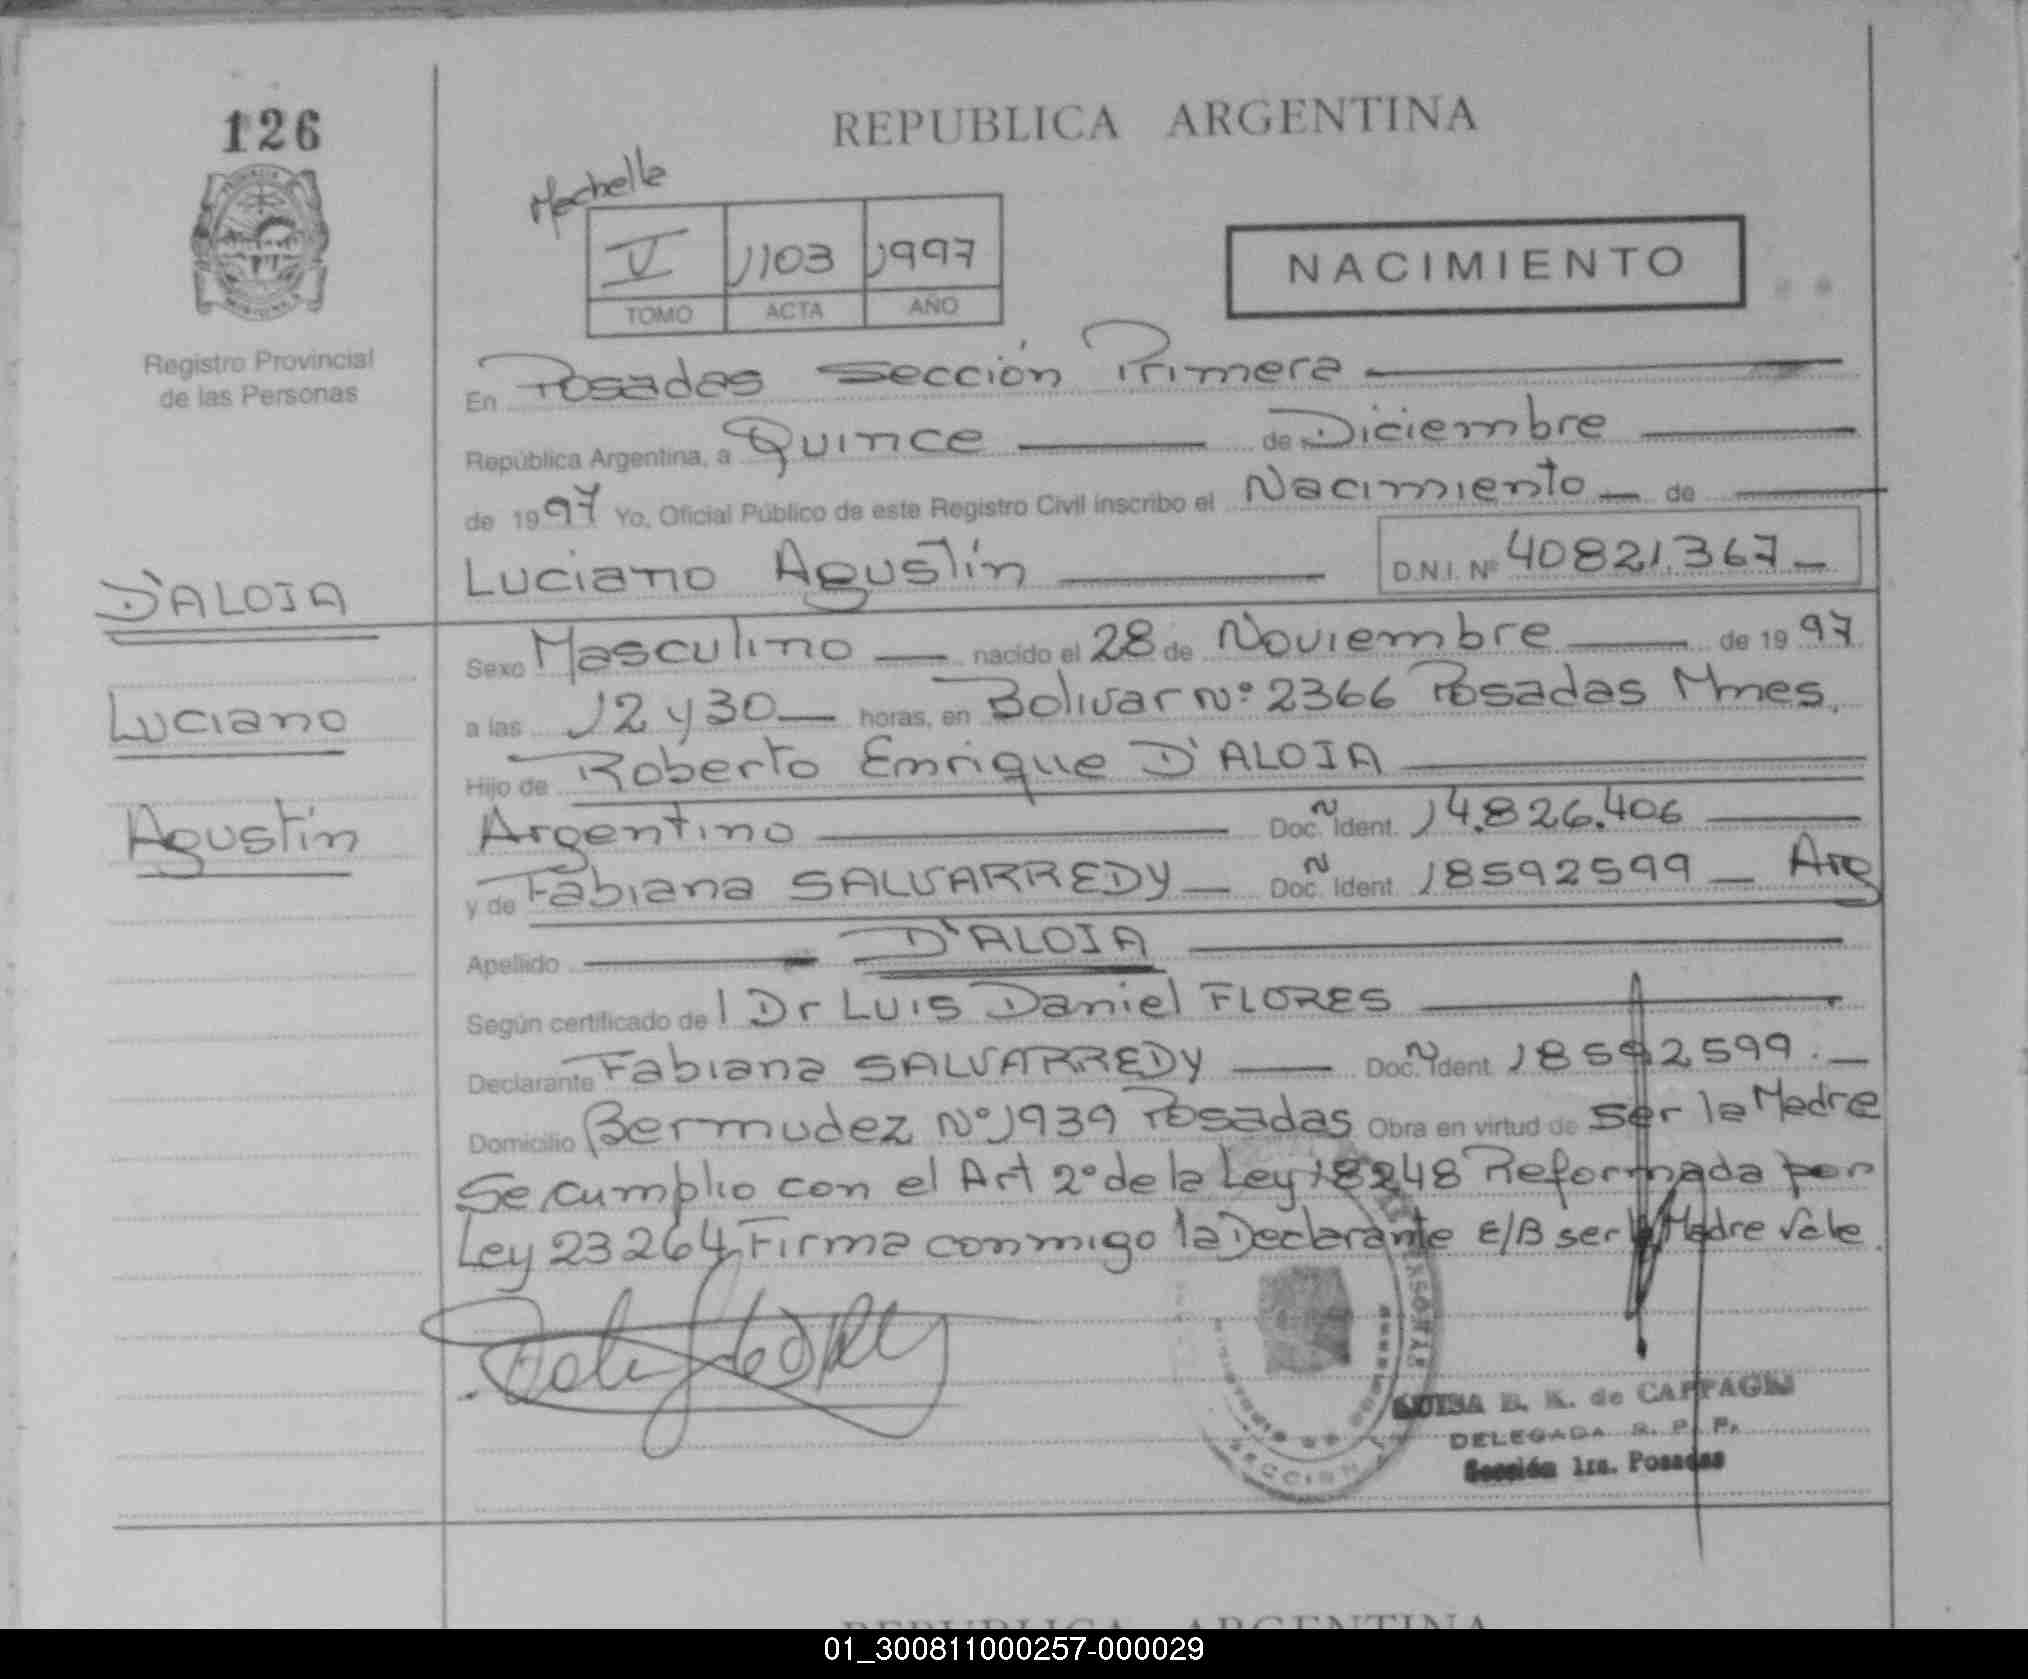 126
REPUBLICA ARGENTINA
Machelle
V 1103 1997
TOMO ACTA AÑO
NACIMIENTO
Registro Provincial
de las Personas
En Posadas Sección Primera
República Argentina, a Quince de Diciembre
de 1997 Yo, Oficial Público de este Registro Civil inscribo el Nacimiento de
Luciano Agustín D.N.I. Nº 40821.367
D'ALOIA
Luciano
Agustín
Sexo Masculino nacido el 28 de Noviembre de 1997
a las 12 y 30 horas, en Bolivar Nº 2366 Posadas Mnes.
Hijo de Roberto Enrique D'ALOIA
Argentino Doc. Ident. 14.826.406
y de Fabiana SALVARREDY Doc. Ident. 18592599 Arg
Apellido D'ALOIA
Según certificado de l Dr Luis Daniel FLORES
Declarante Fabiana SALVARREDY Doc. Ident 18592599.
Domicilio Bermudez Nº 1939 Posadas Obra en virtud de ser la Madre
Se cumplio con el Art 2º de la Ley 18248 Reformada por
Ley 23264 Firma conmigo la Declarante E/B ser la Madre vale.
SECCION
LUISA B. K. de
DELEGADA R. P. P.
Sección 1ra. Posadas
REPUBLICA ARGENTINA
01_300811000257-000029